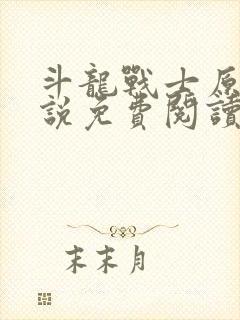 斗龍戰士原
說免費閱讀
末末月